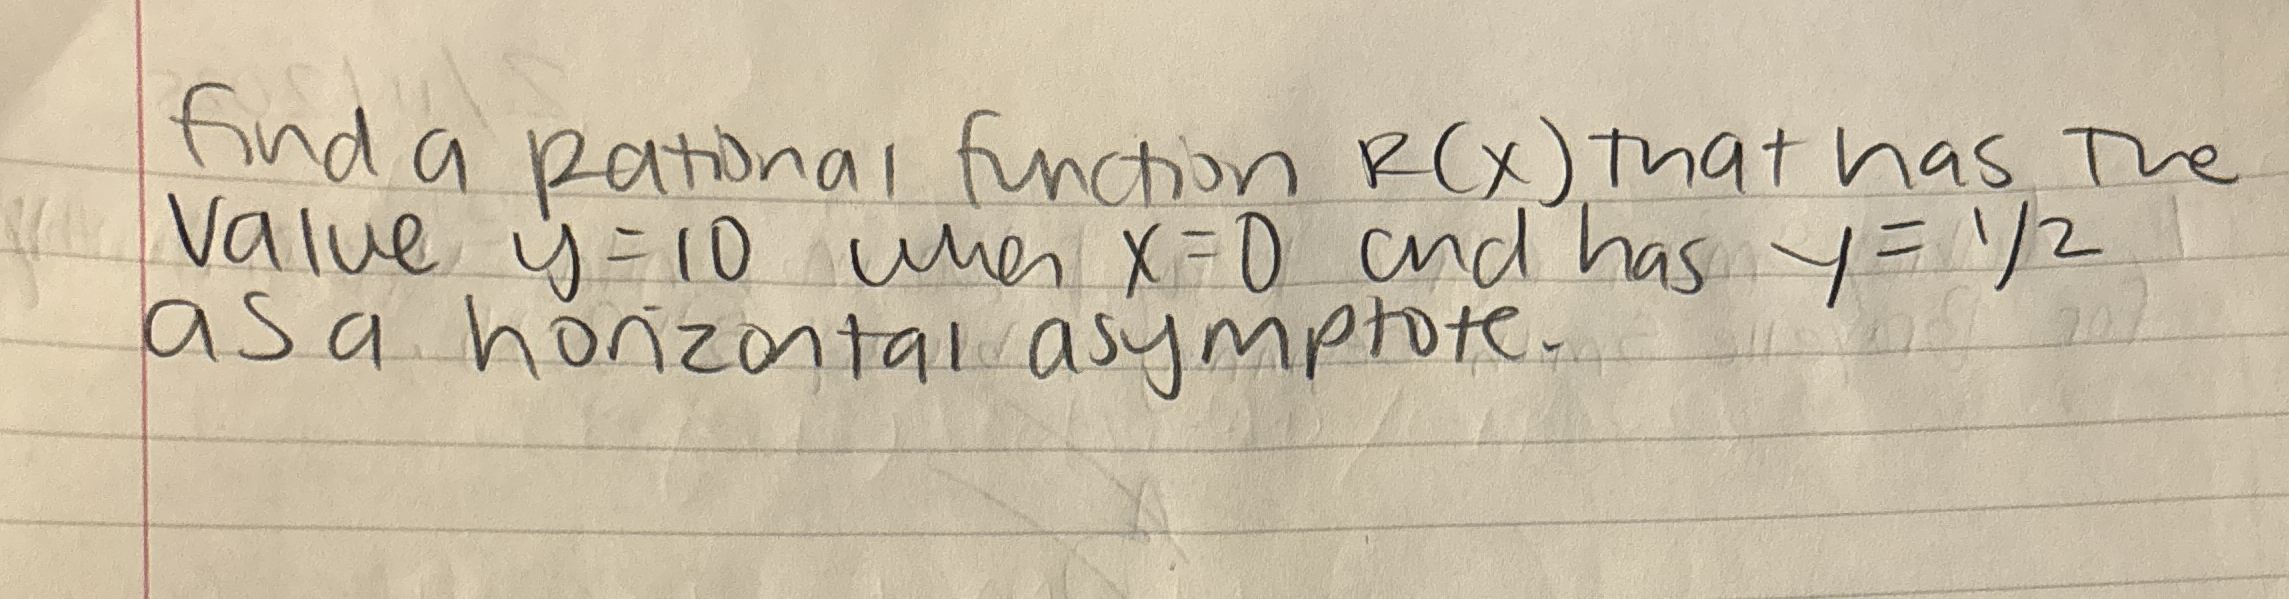 find a Rational function R(x) that has The
value y=10 when x=0 and has y= 1/2
as a horizontal asymptote.